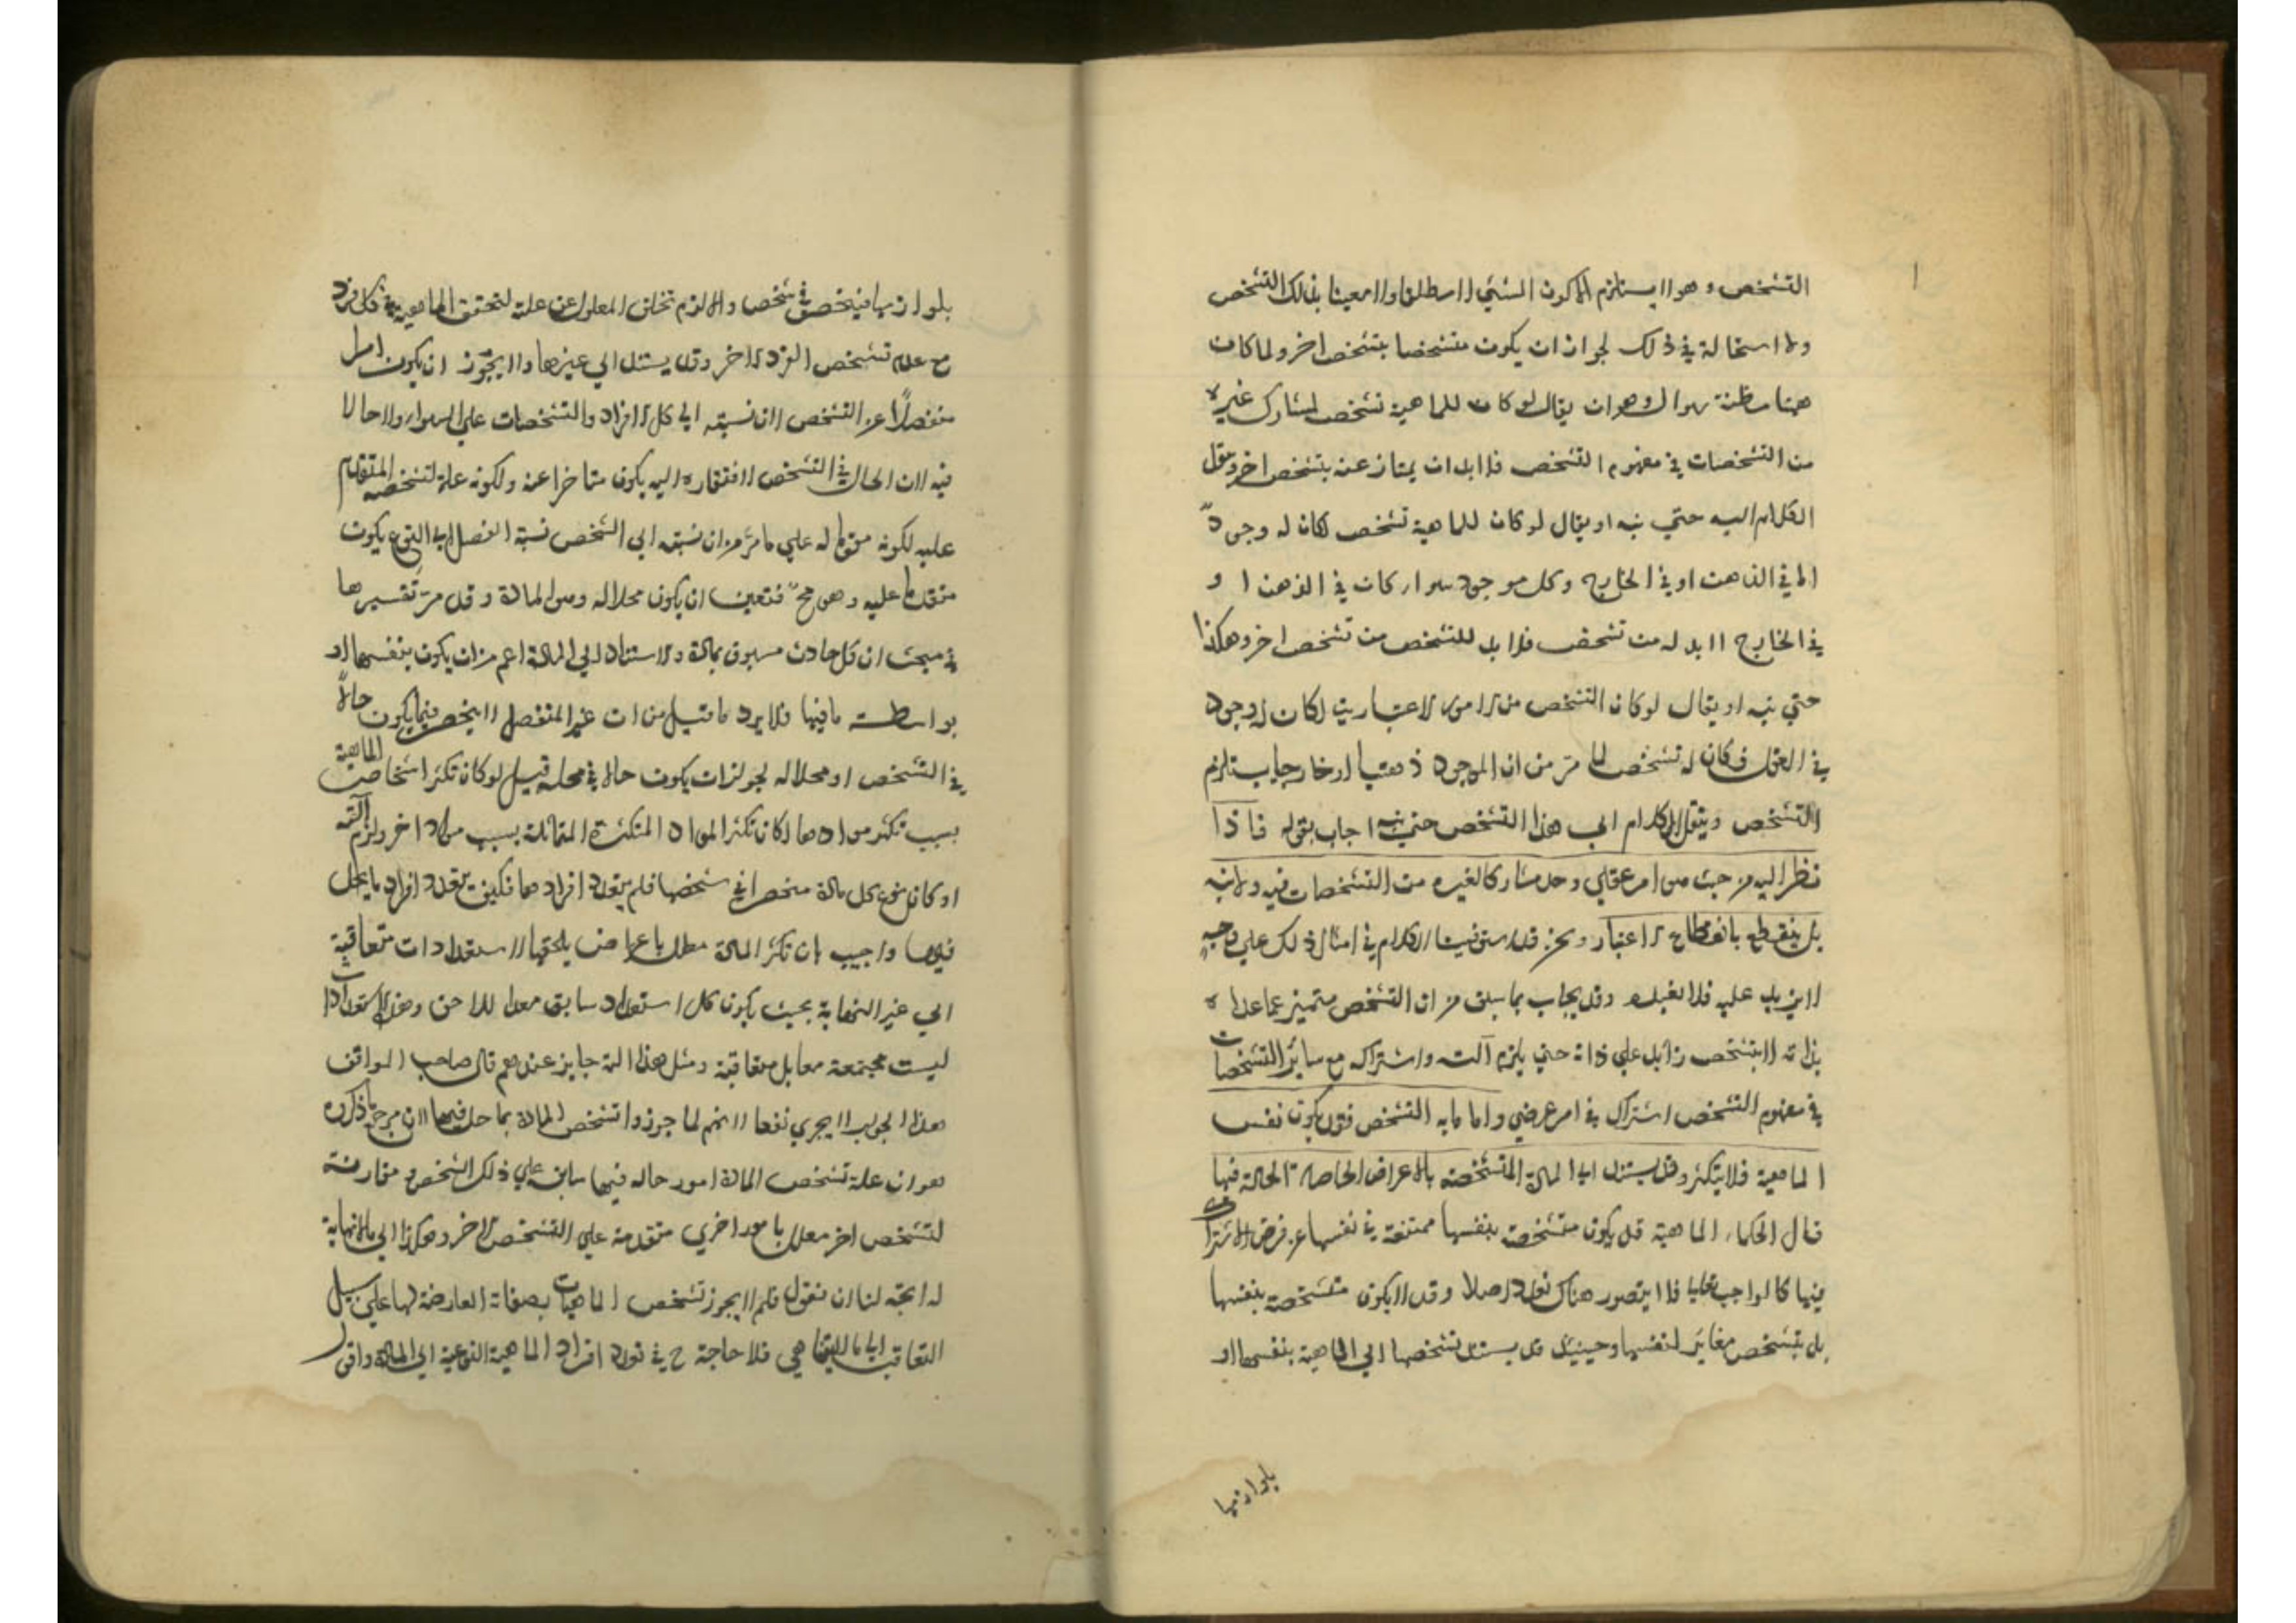 التشخص وهو لا يستلزم الا كون الشئ لا مطلقا ولا معينا بذلك التشخص
ولا استحالة في ذلك لجواز ان يكون متشخصا بتشخص اخر ولما كان
هنا مظنة سوال وهو ان يقال لو كان للماهية تشخص لشارك غيره
من التشخصات في مفهوم التشخص فلا بد ان يمتاز عنه بتشخص اخر وينقل
الكلام اليه حتى يتسلسل او يقال لو كان للماهية تشخص لكان له وجود
اما في الذهن او في الخارج وكل موجود سواء كان في الذهن او
في الخارج لا بد له من تشخص فلا بد للتشخص من تشخص اخر وهكذا
حتى او يقال لو كان التشخص من الامور الاعتبارية لكان له وجود
في العقل فكان له تشخص لما مر من ان الموجود ذهنيا او خارجيا يستلزم
التشخص وينقل الكلام الى هذا التشخص حتى اجاب بقوله فاذا
نظر اليه من حيث هو امر عقلي وجد مشاركا لغيره من التشخصات فيه ولا
بل ينقطع بانقطاع الاعتبار ونحن قد استوفينا الكلام في امثال ذلك على وجه
لا مزيد عليه فلا نعيده وقد يجاب بما سبق من ان التشخص متميز عما عداه
بذاته لا بتشخص زايد على ذاته حتى يلزم التسـ واشتراكه مع سائر التشخصات
في مفهوم التشخص اشتراك في امر عرضي واما ما به التشخص فقد يكون نفس
الماهية فلا يتكثر وقد يستند الى المادة المتشخصة بالاعراض الخاصة الحالة فيها
قال الحكماء الماهية قد يكون متشخصة بنفسها ممتنعة في نفسها عن فرض الاشتراك
فيها كالواجب تعالى فلا يتصور هناك تعدد اصلا وقد لا يكون متشخصة بنفسها
بل بتشخص مغاير لنفسها وحينئذ قد يستند تشخصها الى الماهية بنفسها او
بلوازمها
بلوازمها فينحصر في شخص والا لزم تخلف المعلول عن علته لتحقق الماهية في كل فرد
مع عدم تشخص الفرد الاخر وقد يستند الى غيرها ولا يجوز ان يكون امرا
منفصلا عن التشخص لان نسبته الى كل الافراد والتشخصات على السواء ولا حالا
فيه لان الحال في التشخص لافتقاره اليه يكون متاخرا عنه ولكونه علة لتشخصه المتقدم
عليه لكونه مقوما له على ما مر من ان نسبته الى الشخص نسبة الفصل الى النوع يكون
متقدما عليه وهو مح فتعين ان يكون محلا له وهو المادة وقد مر تفسيرها
في مبحث ان كل حادث مسبوق بمادة والاستناد الى المادة اعم من ان يكون بنفسها او
بواسطة ما فيها فلا يرد ما قيل من ان غير المنفصل لا ينحصر فيما يكون حالا
في التشخص او محلا له لجواز ان يكون حالا في محله قيل لو كان تكثر اشخاص الماهية
بسبب تكثر موادها لكان تكثر المواد المتكثرة المتماثلة بسبب مواد اخر ولزم التسـ
او كان نوع كل مادة منحصرا في شخصها فلم يتعدد افرادها فكيف يتعدد افراد ما يحل
فيها واجيب بان تكثر المادة معلل باعراض يلحقها لاستعدادات متعاقبة
الى غير النهاية بحيث يكون كل استعداد سابق معدا للاحق وهذه الاستعدادات
ليست مجتمعة معا بل متعاقبة ومثل هذا التسـ جايز عندهم قال صاحب المواقف
هذا الجواب لا يجدي نفعا لانهم لما جوزوا تشخص المادة بما حل فيها لان مرجع ما ذكروه
هو ان علة تشخص المادة امور حالة فيها سابقة على ذلك الشخص مقارنة
لتشخص اخر معلل بامور اخرى متقدمة على التشخص الاخر وهكذا الى ما لا نهاية
له اتجه لنا ان نقول فلم لا يجوز تشخص الماهيات بصفات العارضة لها على سبيل
التعاقب الى ما لا يتناهى فلا حاجة ح في تعدد افراد الماهية النوعية الى المادة واقول